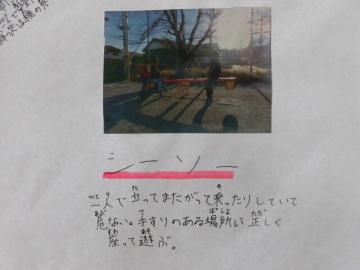 シーソー
一人で立ってまたがって乗ったりしていて
危ない。手すりのある場所に正しく
座って遊ぶ。